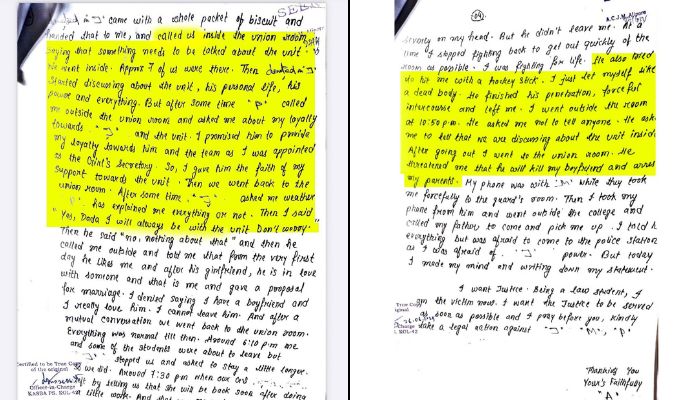 came with a whole packet of biscuit and
handed that to me, and called us inside the union room
saying that something needs to be talked about the unit.
We went inside. Approx 7 of us were there. Then
started discussing about the unit, his personal life, his
power and everything. But after some time "P" called
me outside the union room and asked me about my loyalty
towards "J" and the unit. I promised him to provide
my loyalty towards him and the team as I was appointed
as the Girl's Secretary. So, I gave him the faith of my
support towards the unit. Then we went back to the
union room. After some time "J" asked me weather
has explained me everything or not. Then I said
"Yes, Dada I will always be with the unit Don't worry."
Then he said "no, nothing about that" and then he
called me outside and told me that from the very first
day he likes me and after his girlfriend, he is in love
with someone and that is me and gave a proposal
for marriage. I denied saying I have a boyfriend and
I really love him. I cannot leave him. And after a
mutual conversation we went back to the union room.
Everything was normal till then. Around 6:10 p.m me
and some of the students were about to leave but
"J" stopped us and asked to stay a little longer.
So we did. Around 7:30 pm when our
left by telling us that she will be back soon after doing
Certified to be True Copy
of the original
Officer-in-Charge
KASBA PS, KOL-42
A.C.J.M, Alipore
on my head. But he didn't leave me. At a
time I stopped fighting back to get out quickly of the
room as possible. I was fighting for life. He also tried
to hit me with a hockey stick. I just let myself like
a dead body. He finished his penetration, forceful
intercourse and left me. I went outside the room
at 10:50 p.m. He asked me not to tell anyone. He ask
me to tell that we are discussing about the unit inside.
After going out I went to the union room. He
threatened me that he will kill my boyfriend and arrest
my parents. My phone was with "M" while they took
me forcefully to the guard's room. Then I took my
phone from him and went outside the college and
called my father to come and pick me up. I told
everything but was afraid to come to the police station
as I was afraid of "J" power. But today
I made my mind and writing down my statement.
I want Justice. Being a law student, I
am the victim now. I want the Justice to be served
as soon as possible and I pray before you, kindly
take a legal action against "J", "M", "P"
True Copy
Thanking You
Your's Faithfully
"A"